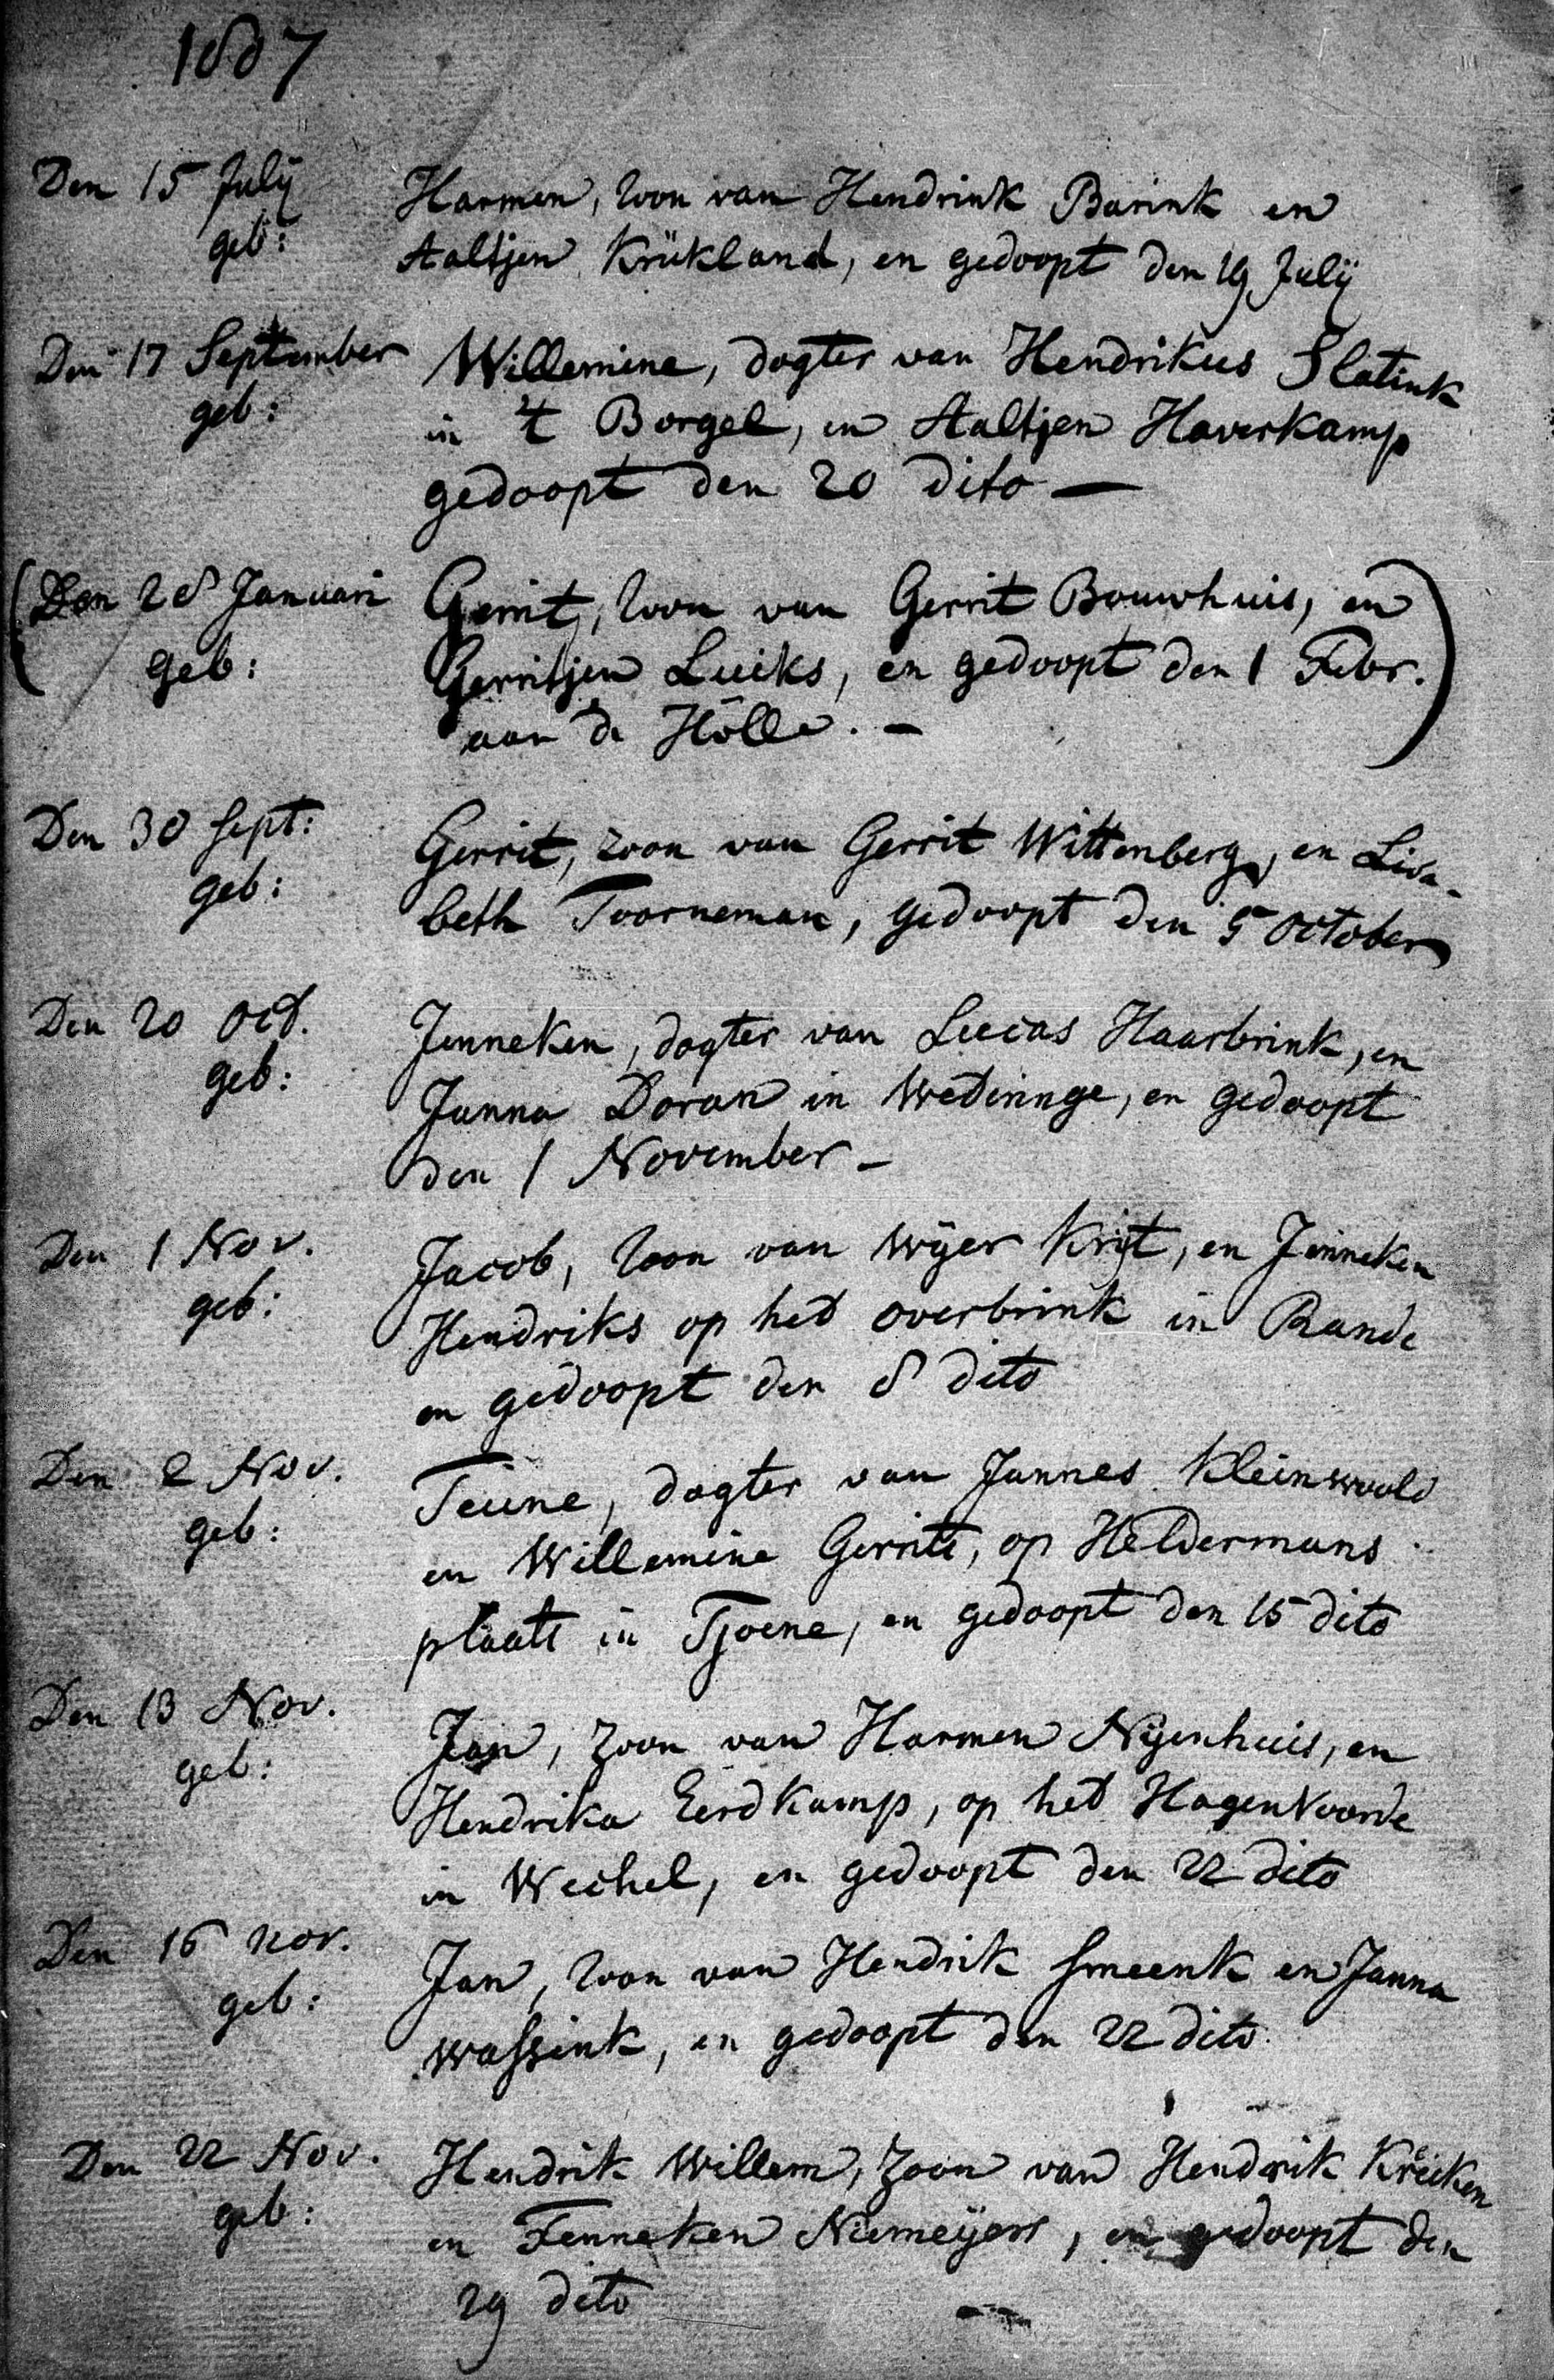 1807
Den 15 Julij
geb:
Harmen, zoon van Hendrink Barink en
Aaltjen Krükland, en gedoopt den 19 Julij
Den 17 September
geb:
Willemine, dogter van Hendrikus Slatink
in 't Borgel, en Aaltjen Haverkamp
gedoopt den 20 dito —
(Den 28 Januari
geb:
Gerrit, zoon van Gerrit Bouwhuis, en
Gerritjen Luiks, en gedoopt den 1 Febr.)
aan de Hölle. —
Den 30 Sept:
geb:
Gerrit, zoon van Gerrit Wittenberg, en Lisa-
beth Toorneman, gedoopt den 5 October
Den 20 Oct.
geb:
Jenneken, dogter van Lucas Haarbrink, en
Janna Doran in Wedinnge, en gedoopt
den 1 November —
Den 1 Nov.
geb:
Jacob, zoon van Wijer Krijt, en Jenneken
Hendriks op het Overbrink in Rande
en gedoopt den 8 dito
Den 2 Nov.
geb:
Teune, dogter van Jannes Kleinwoold
en Willemine Gerrits, op Heldermans
plaats in Tjoene, en gedoopt den 15 dito
Den 13 Nov.
geb:
Jan, zoon van Harmen Nijenhuis, en
Hendrika Eerdkamp, op het Hagenvoorde
in Wechel, en gedoopt den 22 dito
Den 16 nov.
geb:
Jan, zoon van Hendrik Smeenk en Janna
Wassink, en gedoopt den 22 dito
Den 22 Nov.
geb:
Hendrik Willem, zoon van Hendrik Kreiken
en Fenneken Niemeijers, en gedoopt den
29 dito